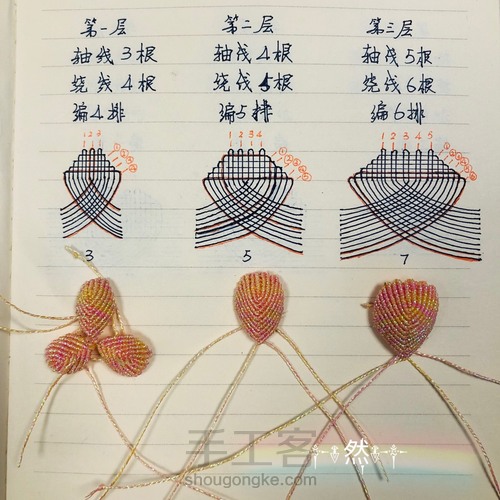 第一层
轴线3根
绕线4根
编4排
1 2 3
3
第二层
轴线4根
绕线5根
编5排
1 2 3 4
5
第三层
轴线5根
绕线6根
编6排
1 2 3 4 5
7
然
手工客
shougongke.com